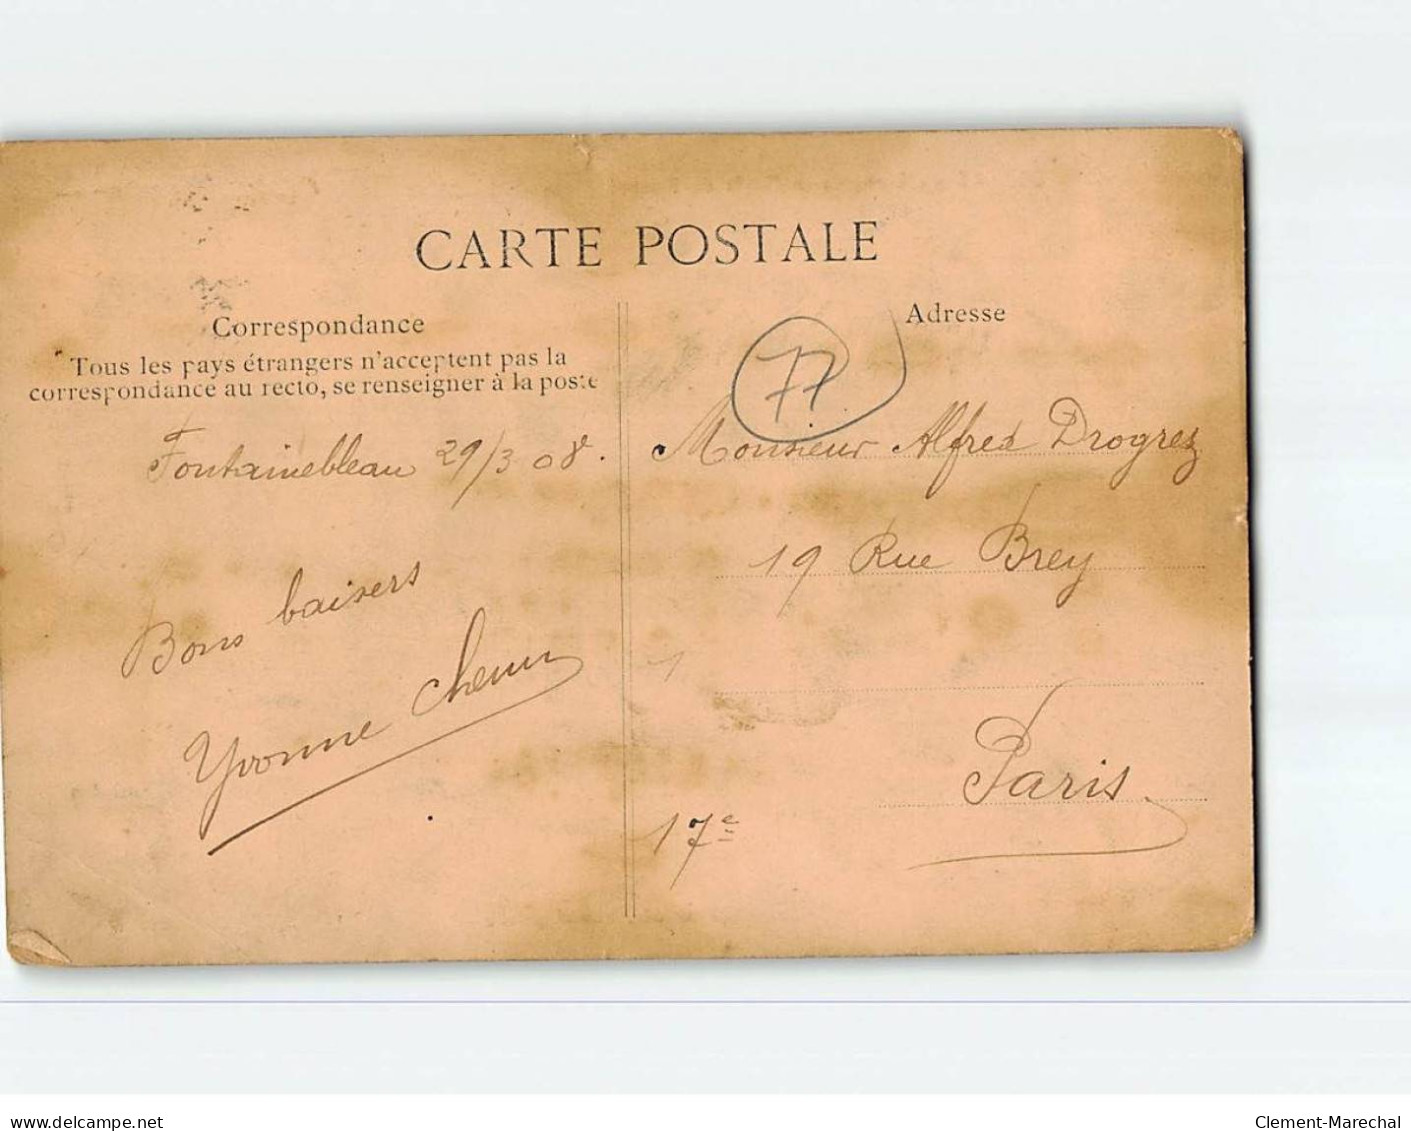 CARTE POSTALE
Correspondance
Tous les pays étrangers n'acceptent pas la
correspondance au recto, se renseigner à la poste
Fontainebleau 29/3 08.
Bons baisers
Yvonne Chenu
Adresse
77
Monsieur Alfred Drogrez
19 Rue Brey
Paris
17e
www.delcampe.net
Clement-Marechal